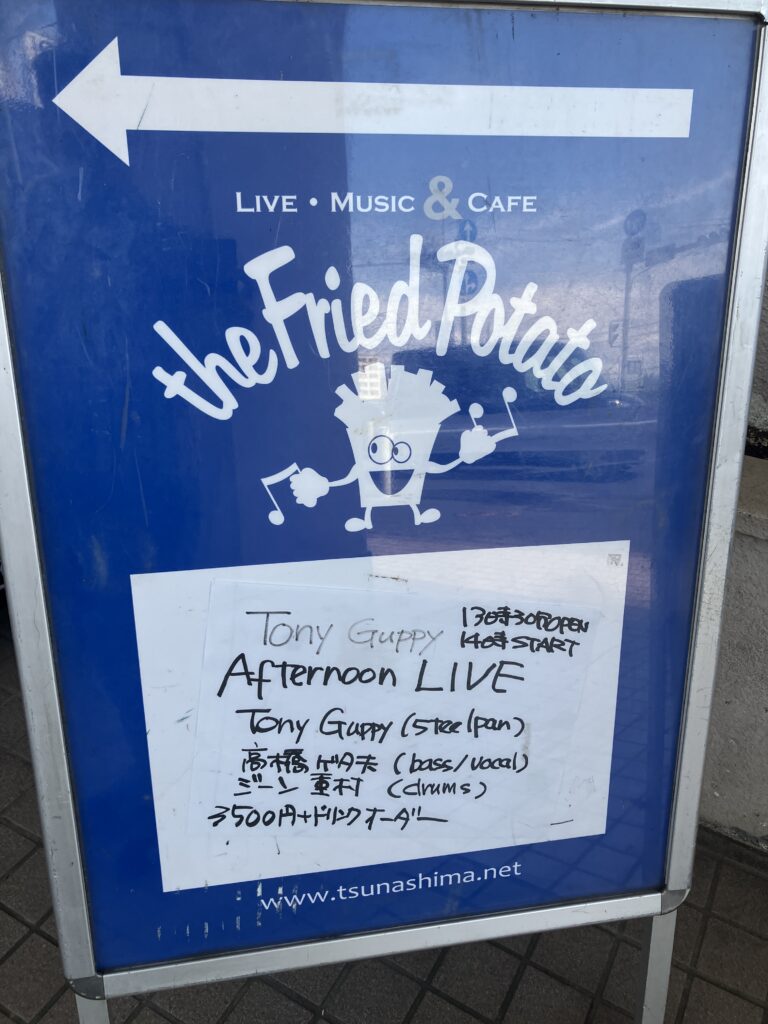 LIVE • MUSIC & CAFE
the Fried Potato
Tony Guppy
13時30分OPEN
14時START
Afternoon LIVE
Tony Guppy (Steelpan)
高橋ゲタ夫 (bass/vocal)
ジーン重村 (drums)
3500円+ドリンクオーダー
www.tsunashima.net